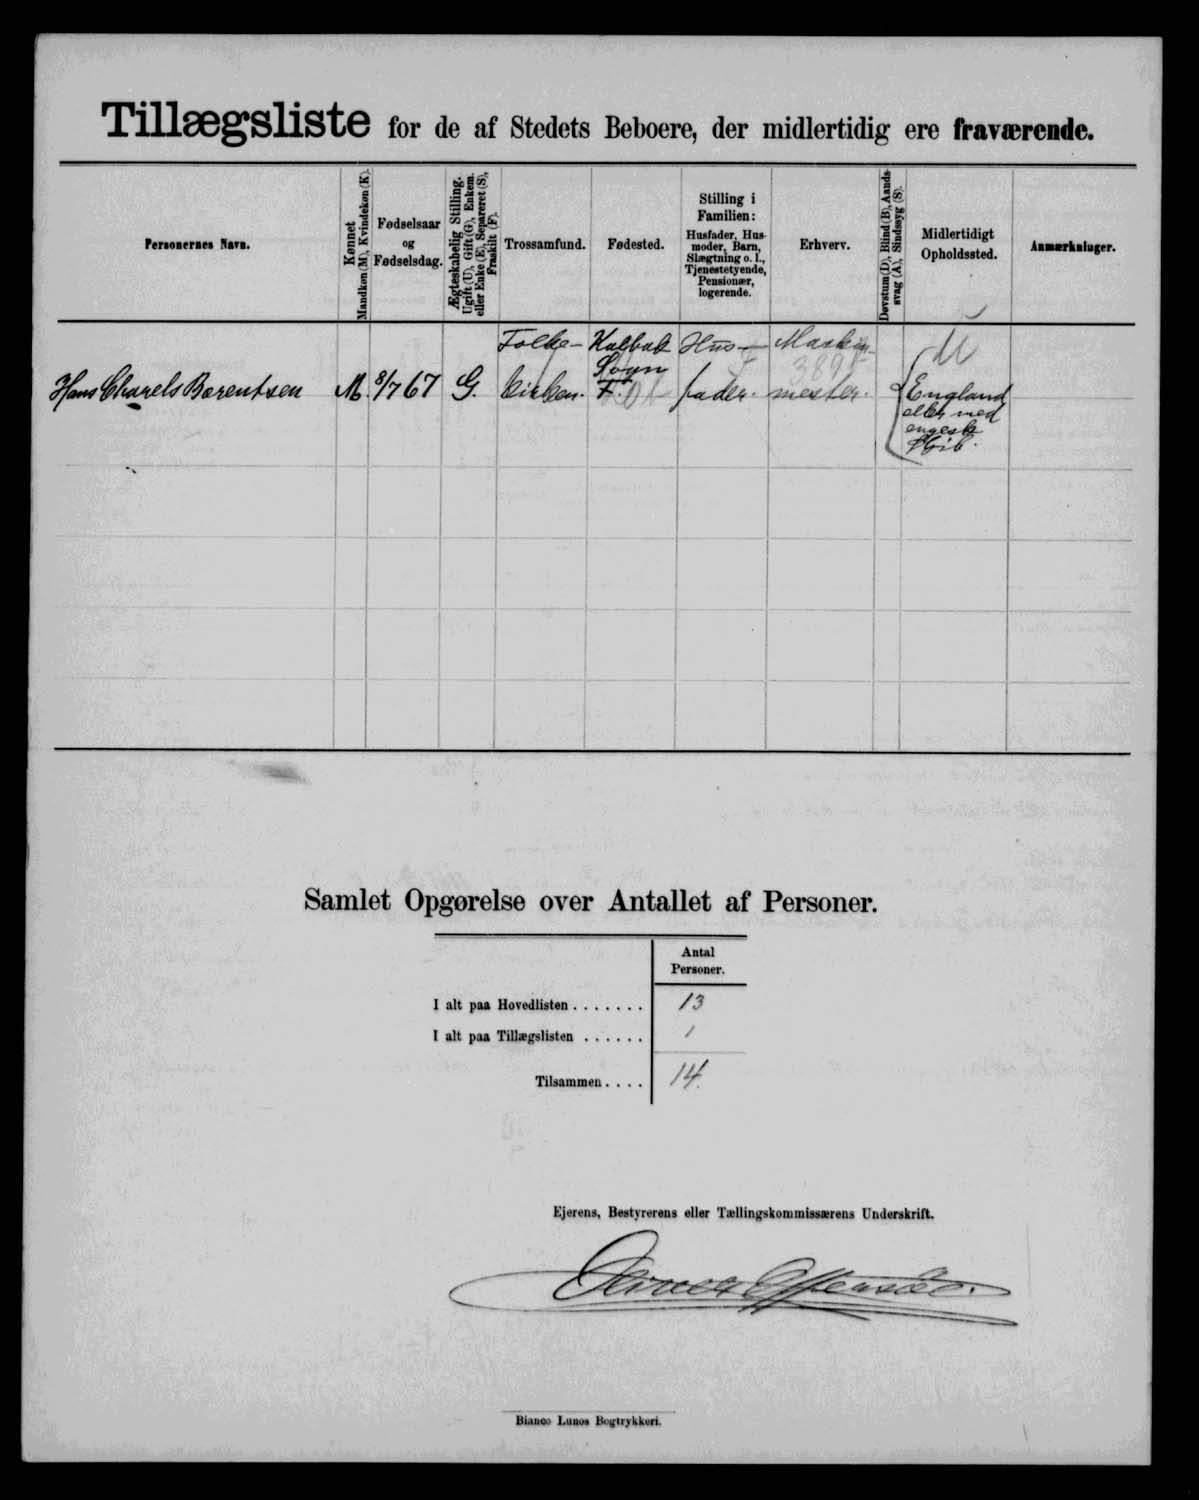 Tillægsliste for de af Stedets Beboere, der midlertidig ere fraværende.
Personernes Navn.
Kønnet
Mandkøn (M), Kvindekøn (K).
Fødselsaar
og
Fødselsdag.
Ægteskabelig Stilling.
Ugift (U), Gift (G), Enkem.
eller Enke (E), Separeret (S),
Fraskilt (F).
Trossamfund.
Fødested.
Stilling i
Familien:
Husfader, Hus-
moder, Barn,
Slægtning o. l.,
Tjenestetyende,
Pensionær,
logerende.
Erhverv.
Døvstum (D), Blind (B), Aands-
svag (A), Sindssyg (S).
Midlertidigt
Opholdssted.
Anmærkninger.
Hans Charels Barentsen
M.
8/7 67
G.
Folke-
kirken.
Kalbak
Sogn
F.
Hus-
fader.
Maskin-
mester.
England
eller med
engesk
Skib.
Samlet Opgørelse over Antallet af Personer.
Antal
Personer.
I alt paa Hovedlisten . . . . . . . 13
I alt paa Tillægslisten . . . . . . 1
Tilsammen . . . . 14.
Ejerens, Bestyrerens eller Tællingskommissærens Underskrift.
Bianco Lunos Bogtrykkeri.